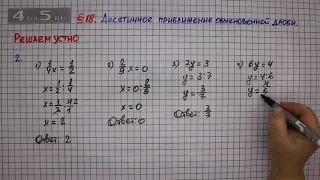 §18. Десятичное приближение обыкновенной дроби.
Решаем устно
2.
1) 1/4x = 1/2
x = 1/2 : 1/4
x = 2
Ответ: 2
2) 2/9 x = 0
x = 0 : 2/9
x = 0
Ответ: 0
3) 7y = 3
y = 3:7
y = 3/7
Ответ: 3/7
4) 6y = 4
y = 4:6
y =